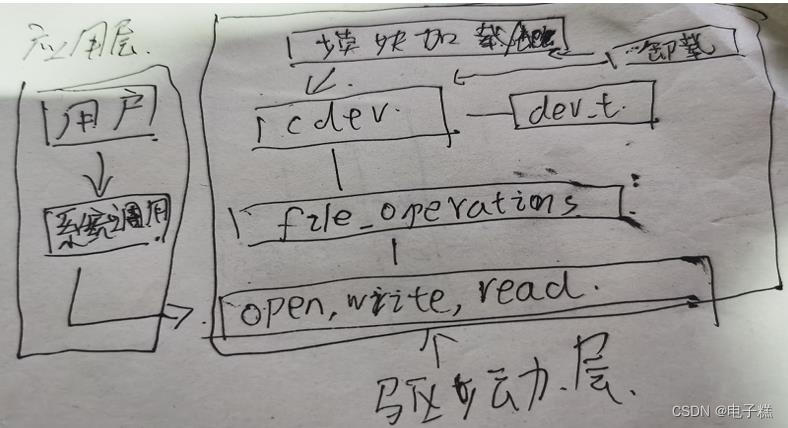 应用层.
模块加载
卸载
用户
cdev.
dev_t.
系统调用
file_operations
open, write, read.
驱动层.
CSDN @电子糕